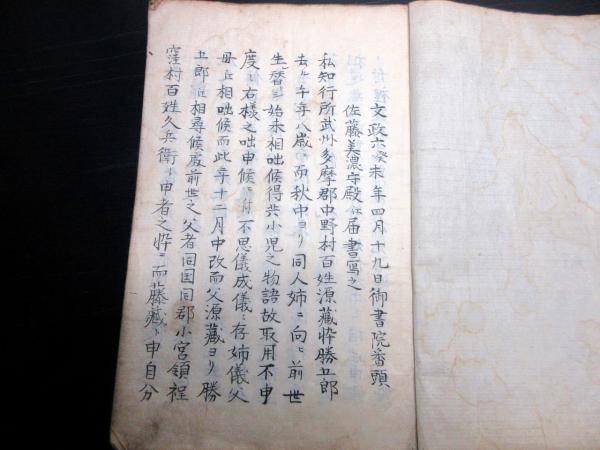 文政六癸未年四月十九日御書院番頭
佐藤美濃守殿江届書写之
私知行所武州多摩郡中野村百姓源蔵忰勝五郎
去ル午年八歳ニ而秋中ヨリ同人姉ニ向ヒ前世
生替ル始末相咄候得共小児之物語故取用不申
度々右様之咄申候ニ付不思儀成儀ニ存姉儀父
母江相咄候而此年十二月中改而父源蔵ヨリ勝
五郎江相尋候処前世之父者同国同郡小宮領程
窪村百姓久兵衛ト申者之忰ニ而藤蔵ト申自分